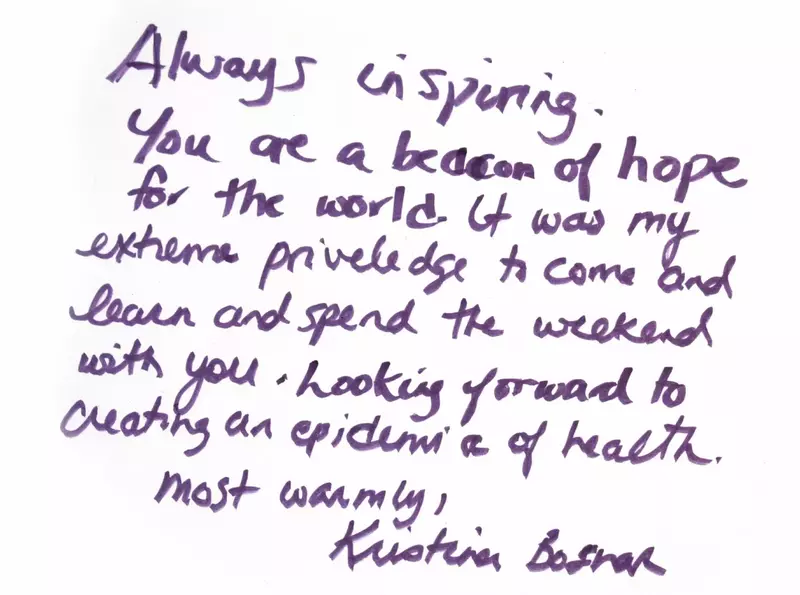 Always inspiring.
You are a beacon of hope
for the world. It was my
extreme priveledge to come and
learn and spend the weekend
with you. Looking forward to
creating an epidemic of health.
Most warmly,
Kristina Bosnar